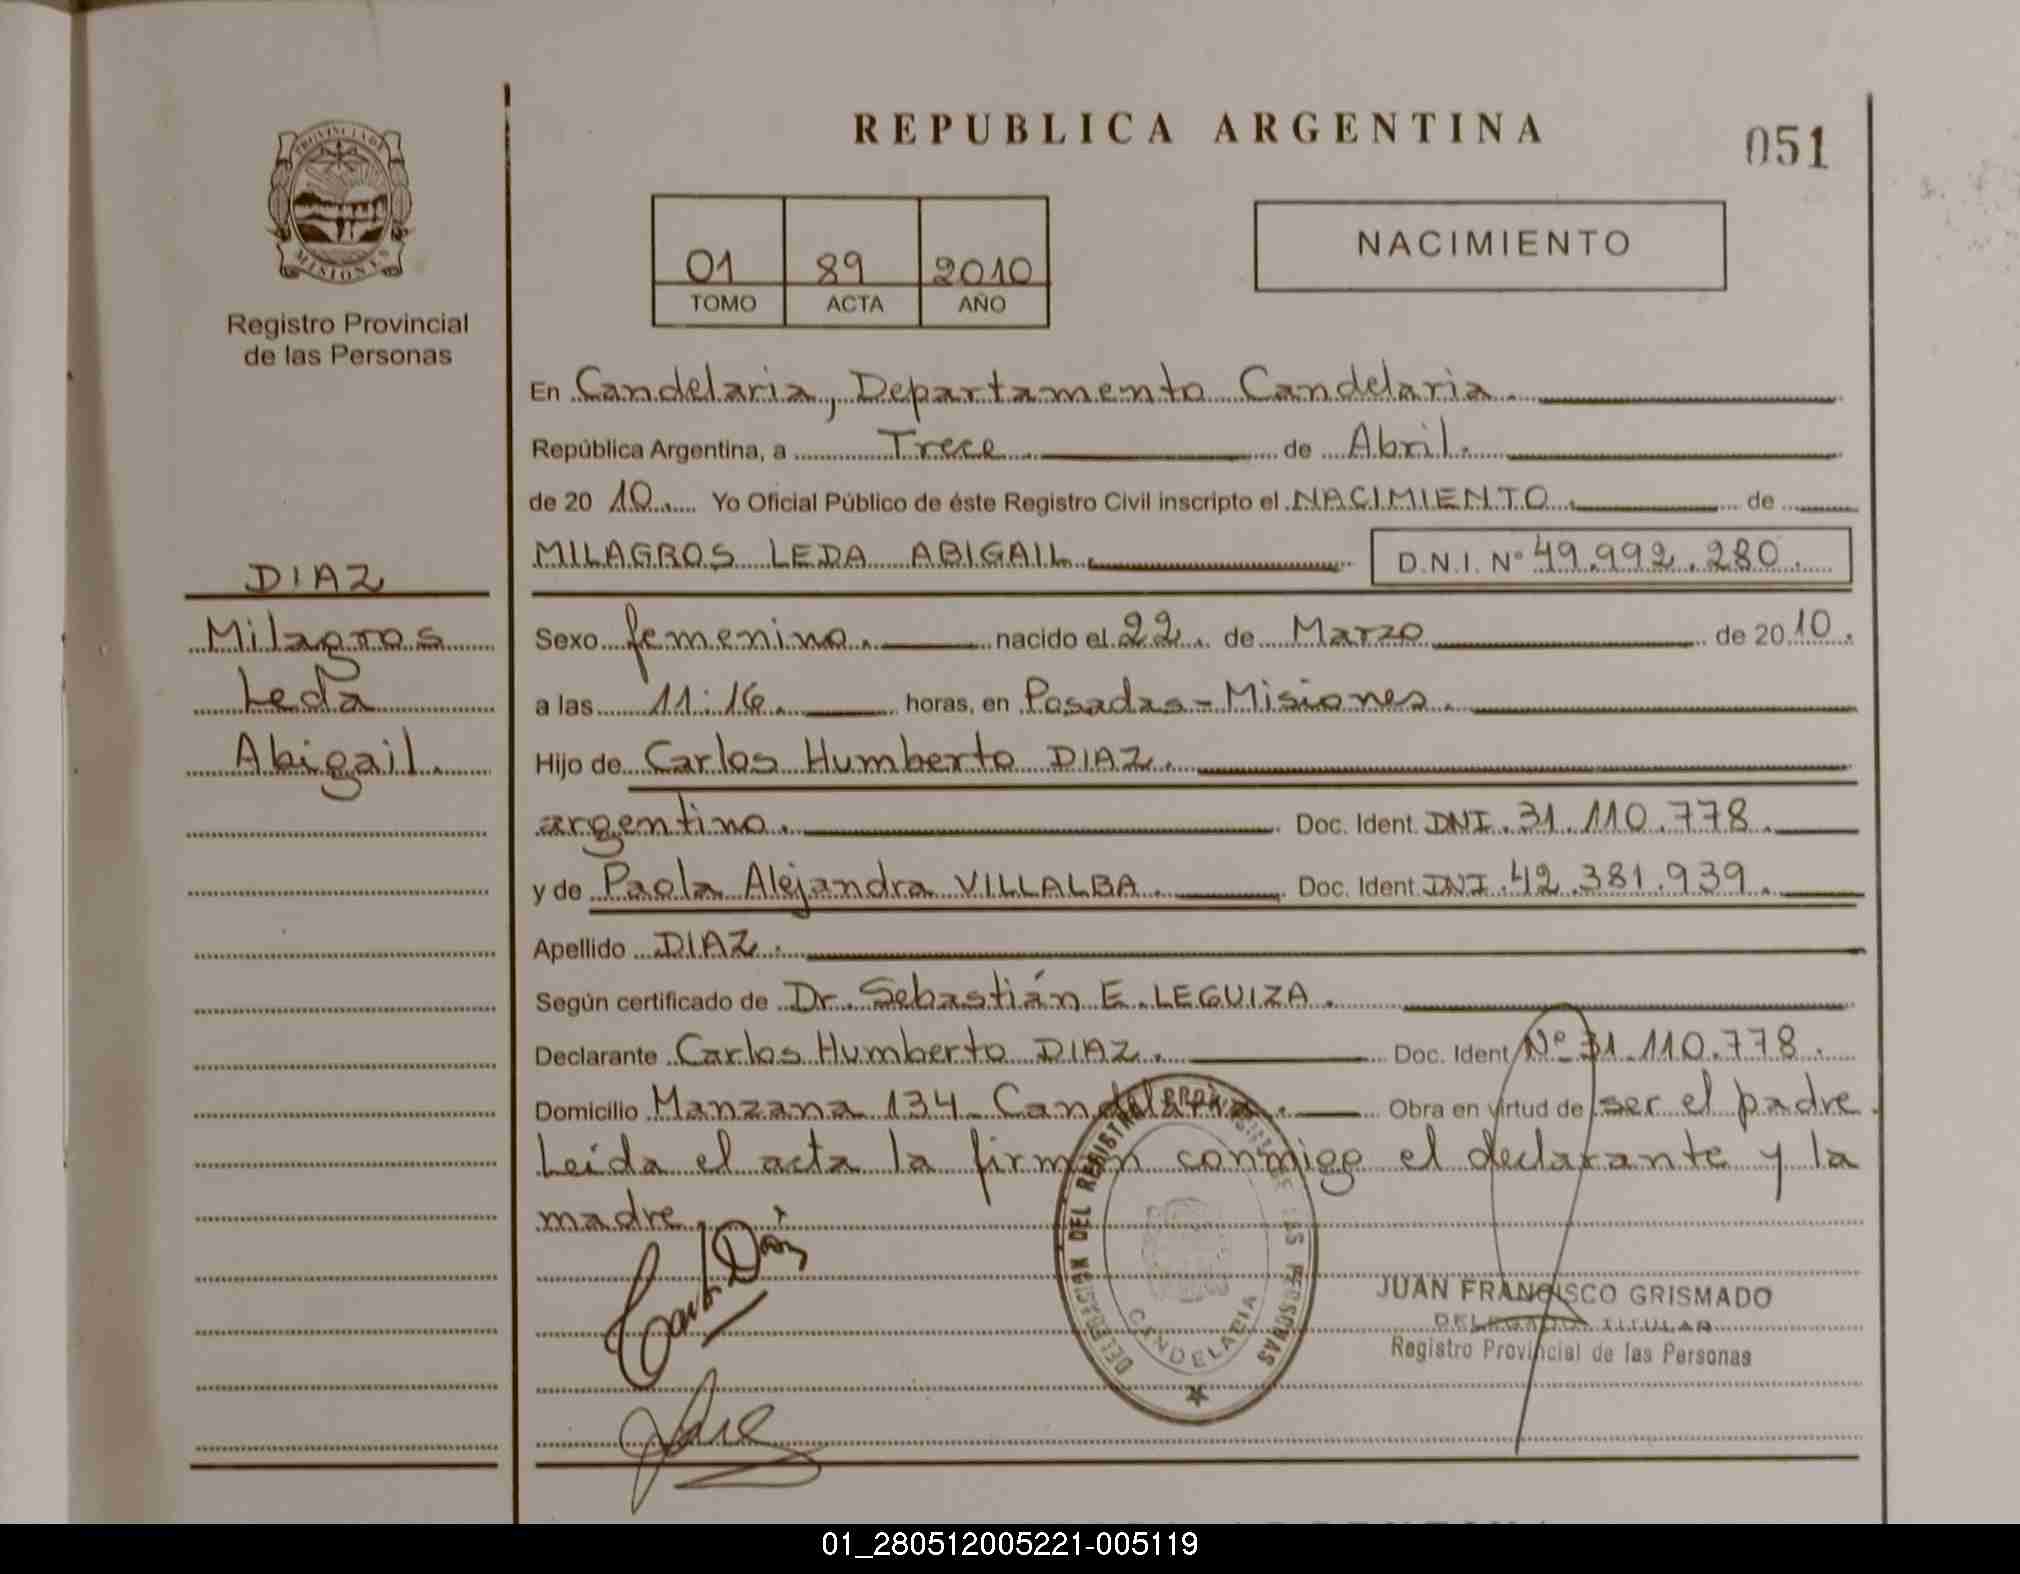 PROVINCIA DE
MISIONES
Registro Provincial
de las Personas
DIAZ
Milagros
Leda
Abigail.
REPUBLICA ARGENTINA
051
01 89 2010
TOMO ACTA AÑO
NACIMIENTO
En Candelaria, Departamento Candelaria.
República Argentina, a Trece de Abril.
de 20 10. Yo Oficial Público de éste Registro Civil inscripto el NACIMIENTO. de
MILAGROS LEDA ABIGAIL. D.N.I. Nº 49.992.280.
Sexo femenino. nacido el 22. de Marzo de 20 10.
a las 11:16. horas, en Posadas-Misiones.
Hijo de Carlos Humberto DIAZ.
argentino. Doc. Ident. DNI. 31.110.778.
y de Paola Alejandra VILLALBA. Doc. Ident. DNI. 42.381.939.
Apellido DIAZ.
Según certificado de Dr. Sebastián E. LEGUIZA.
Declarante Carlos Humberto DIAZ. Doc. Ident. Nº 31.110.778.
Domicilio Manzana 134 - Candelaria. Obra en virtud de ser el padre.
Leída el acta la firman conmigo el declarante y la
madre.
DELEGACION DEL REGISTRO PROVINCIAL DE LAS PERSONAS
CANDELARIA
JUAN FRANCISCO GRISMADO
DELEGADO TITULAR
Registro Provincial de las Personas
01_280512005221-005119